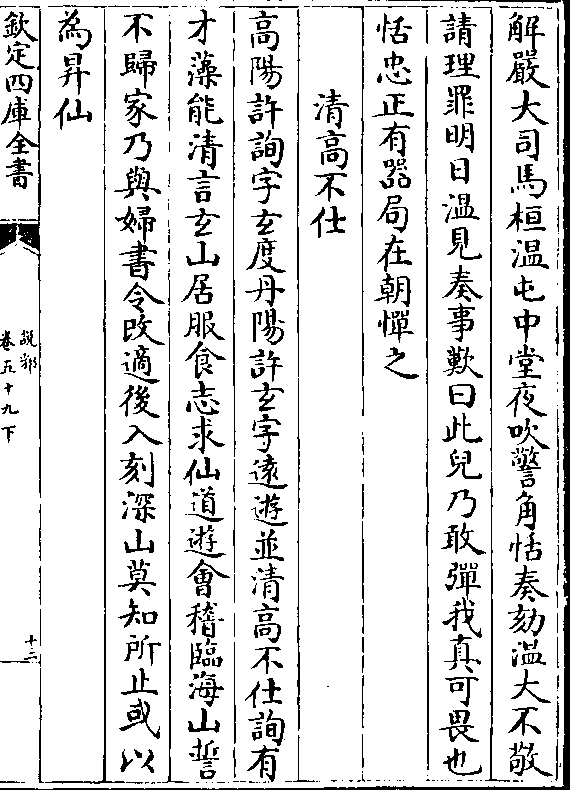 解嚴大司馬桓溫屯中堂夜吹警角恬奏劾溫大不敬
請理罪明日溫見奏事歎曰此兒乃敢彈我真可畏也
恬忠正有器局在朝憚之
清高不仕
高陽許詢字玄度丹陽許玄字遠遊並清高不仕詢有
才藻能清言玄山居服食志求仙道遊會稽臨海山誓
不歸家乃與婦書令改適後入剡深山莫知所止或以
為昇仙
欽定四庫全書
說郛
卷五十九下
十三